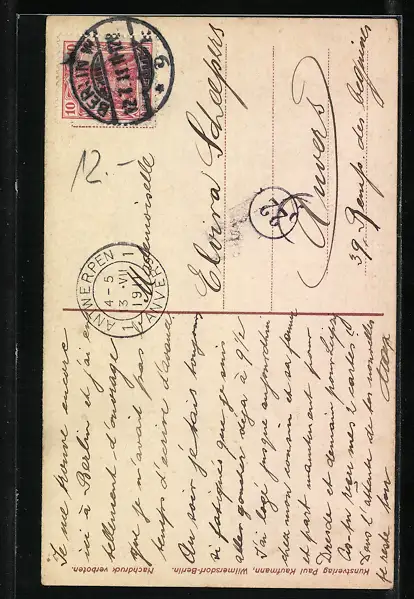 Je me trouve encore
ici à Berlin et j'ai eu
tellement d'ouvrage
que je n'avait pas le
temps d'écrire d'avant.
Au soir je suis toujours
si fatiguée que je vais
aller coucher déjà à 9½
J'ai logé jusque aujourd'hui
chez mon cousin et sa femme
et part maintenant pour
Dresde et demain pour Leipzig
reçu mes 2 cartes?
Dans l'attente de tes nouvelles
je reste ton
Mademoiselle
Elvira Schepers
39, Remp. des béguines
Anvers
12.-
BERLIN W.
9
10 10
ANTWERPEN
4-5
3 VII
1911
ANVERS
1 1
Kunstverlag Paul Kaufmann, Wilmersdorf-Berlin.
Nachdruck verboten.